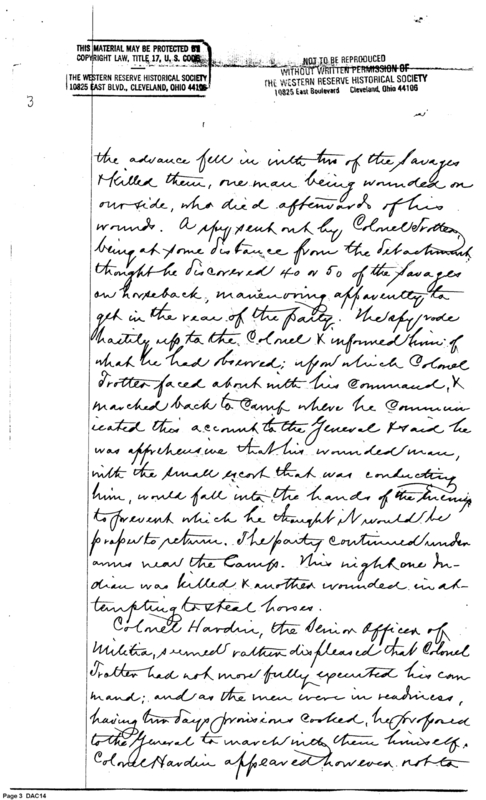 THIS MATERIAL MAY BE PROTECTED BY
COPYRIGHT LAW, TITLE 17, U. S. CODE
THE WESTERN RESERVE HISTORICAL SOCIETY
10825 EAST BLVD., CLEVELAND, OHIO 44106
NOT TO BE REPRODUCED
WITHOUT WRITTEN PERMISSION OF
THE WESTERN RESERVE HISTORICAL SOCIETY
10825 East Boulevard Cleveland, Ohio 44106
3
the advance fell in with two of the Savages
& killed them, one man being wounded on
our side, who died afterwards of his
wounds. A spy sent out by Colonel Trotter,
being at some distance from the detachment,
thought he discovered 40 or 50 of the Savages
on horseback, maneuvring apparently to
get in the rear of the party. The spy rode
hastily up to the Colonel & informed him of
what he had observed; upon which Colonel
Trotter faced about with his command, &
marched back to Camp where he commun-
icated this account to the General & said he
was apprehensive that his wounded man,
with the small escort that was conducting
him, would fall into the hands of the Enemy
to prevent which he thought it would be
proper to return. The party continued under
arms near the Camp. This night one In-
dian was killed & another wounded in at-
tempting to steal horses.
Colonel Hardin, the Senior Officer of
Militia, seemed rather displeased that Colonel
Trotter had not more fully executed his com
mand; and as the men were in readiness,
having two days provisions cooked, he proposed
to the General to march with them himself.
Colonel Hardin appeared however not to
Page 3 DAC14